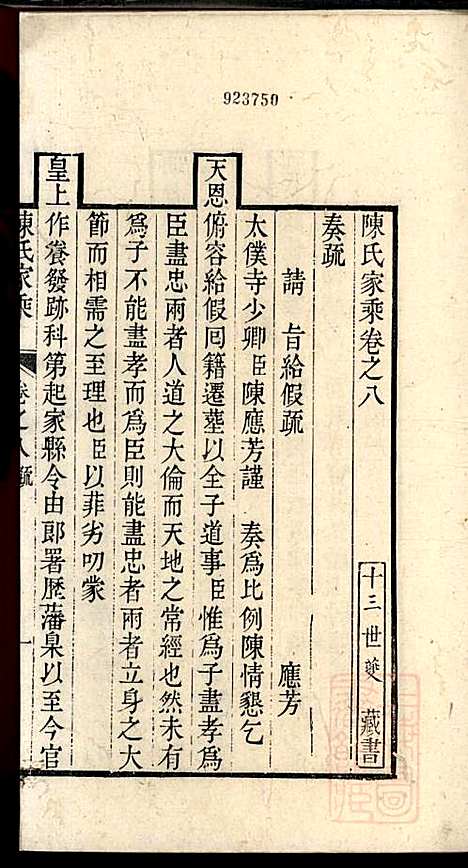 923750
陳氏家乘卷之八
十三世夔 藏書
奏疏
請 旨給假疏 應芳
太僕寺少卿臣陳應芳謹 奏爲比例陳情懇乞
天恩俯容給假囘籍遷墓以全子道事臣惟爲子盡孝爲
臣盡忠兩者人道之大倫而天地之常經也然未有
爲子不能盡孝而爲臣則能盡忠者兩者立身之大
節而相需之至理也臣以非劣叨蒙
皇上作養發跡科第起家縣令由郎署歷藩臬以至今官
陳氏家乘 卷之八疏 一